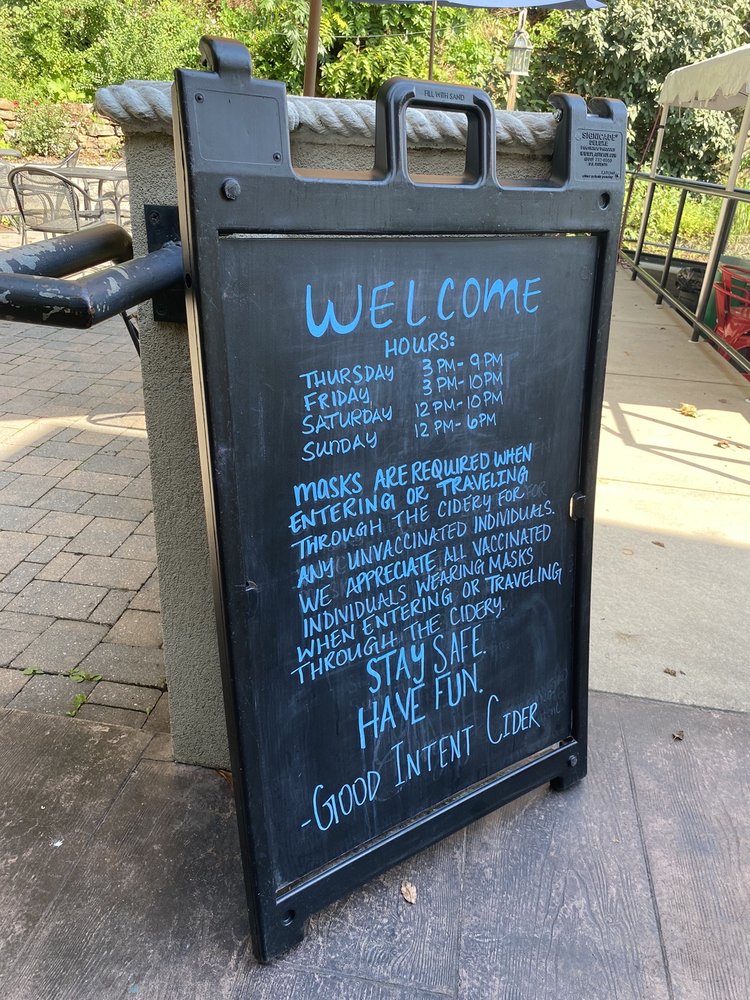 FILL WITH SAND
SIGNICADE
DELUXE
WELCOME
HOURS:
THURSDAY 3PM-9PM
FRIDAY 3PM-10PM
SATURDAY 12PM-10PM
SUNDAY 12PM-6PM
MASKS ARE REQUIRED WHEN
ENTERING OR TRAVELING
THROUGH THE CIDERY FOR
ANY UNVACCINATED INDIVIDUALS.
WE APPRECIATE ALL VACCINATED
INDIVIDUALS WEARING MASKS
WHEN ENTERING OR TRAVELING
THROUGH THE CIDERY.
STAY SAFE.
HAVE FUN.
-GOOD INTENT CIDER